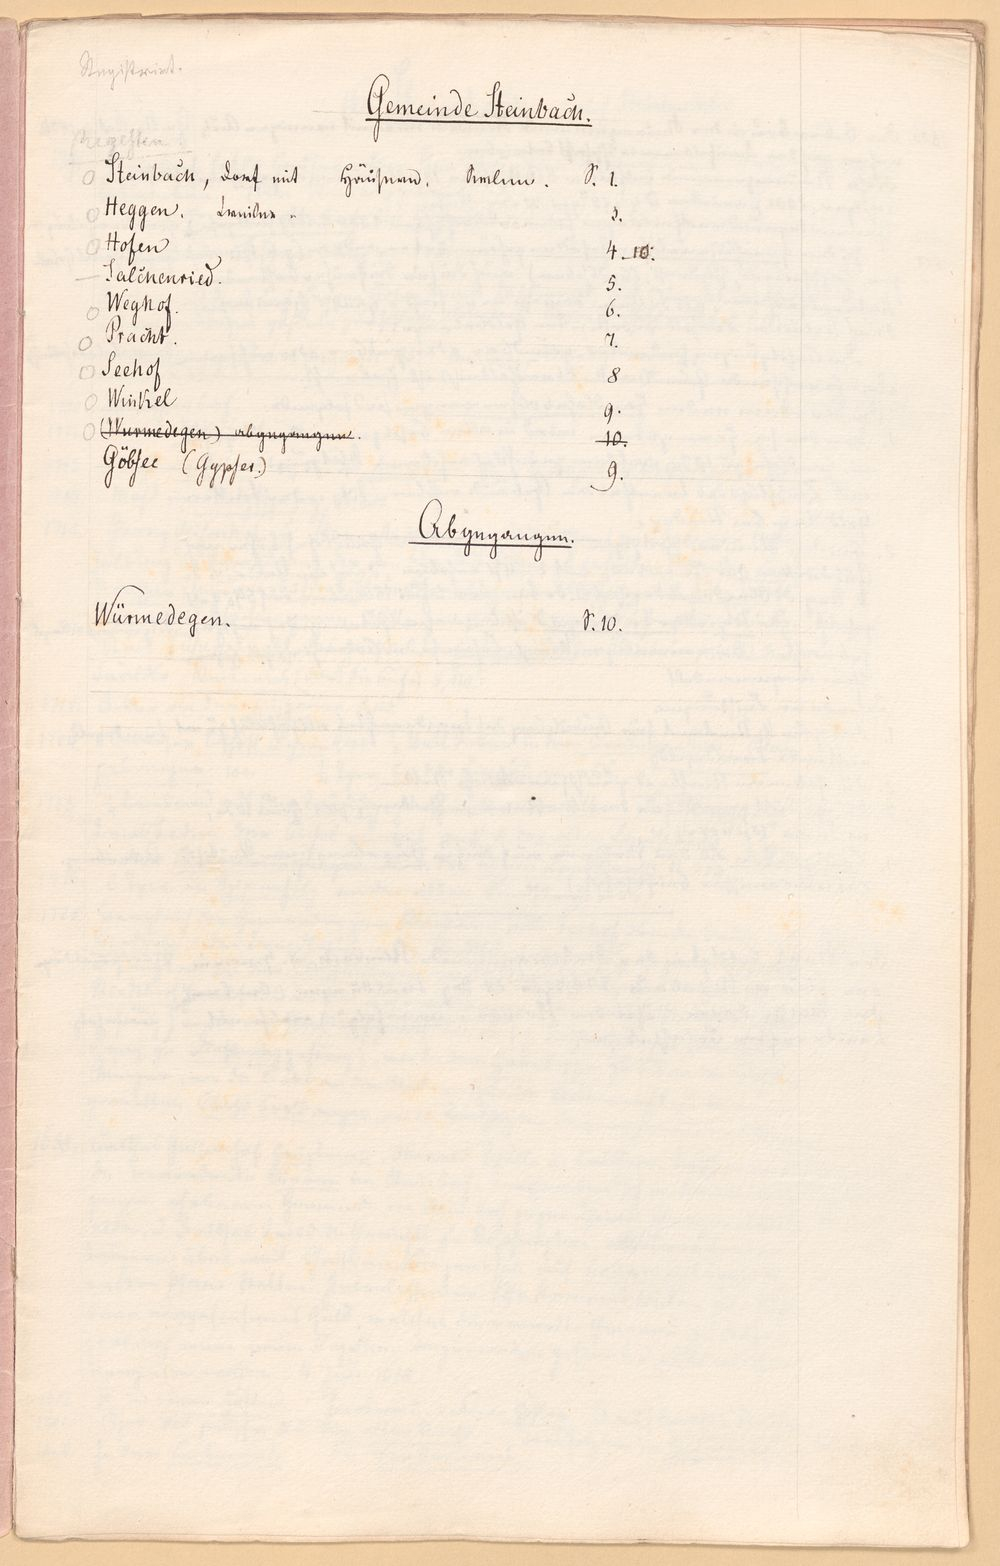 Registrirt.
Gemeinde Steinbach.
Regesten
Steinbach, Dorf mit Häusern. Seelen. S. 1.
Heggen. 3.
Hofen 4. 10.
Salchenried. 5.
Weghof. 6.
Pracht. 7.
Seehof 8
Winkel 9.
(Wurmedegen) abgegangen. 10.
Göbsee (Gypser.) 9.
Abgegangen.
Würmedegen. S. 10.